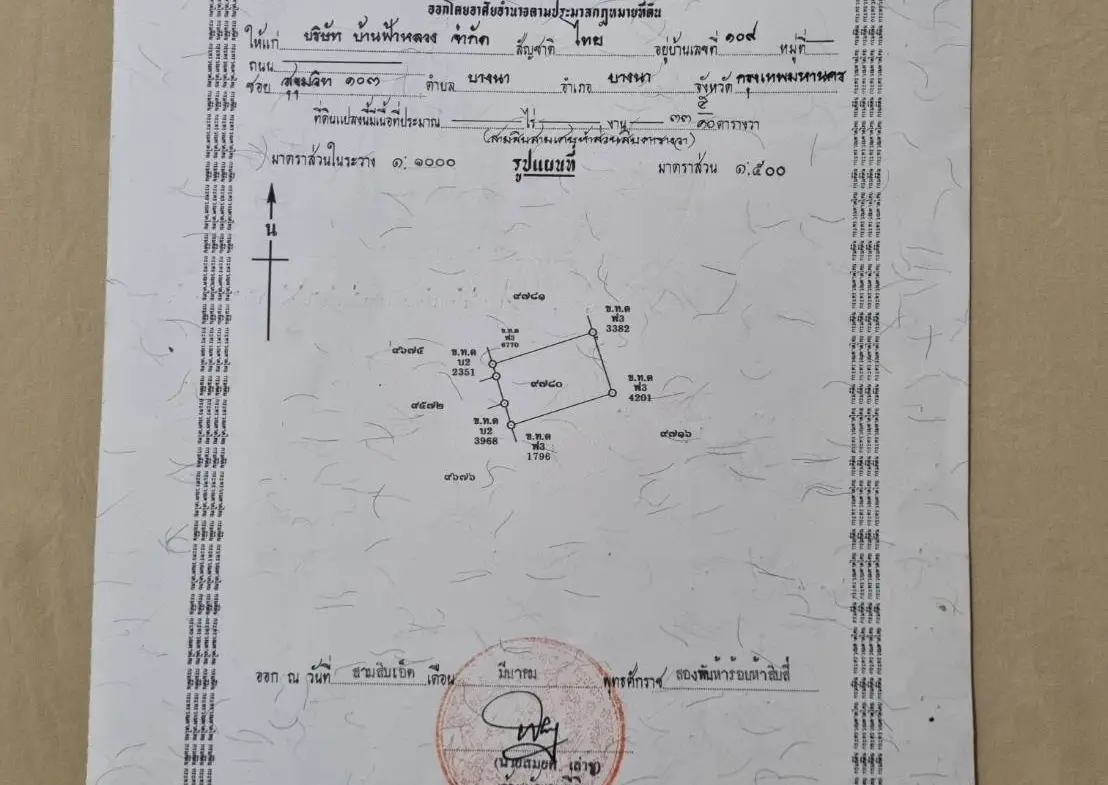 ออกโดยอาศัยอำนาจตามประมวลกฎหมายที่ดิน
ให้แก่ บริษัท บ้านฟ้าหลวง จำกัด สัญชาติ ไทย อยู่บ้านเลขที่ ๑๐๙ หมู่ที่
ถนน
ซอย สุขุมวิท ๑๐๓ ตำบล บางนา อำเภอ บางนา จังหวัด กรุงเทพมหานคร
ที่ดินแปลงนี้มีเนื้อที่ประมาณ ไร่ งาน ๓๓ ๕/๑๐ ตารางวา
(สามสิบสามเศษห้าส่วนสิบตารางวา)
มาตราส่วนในระวาง ๑: ๑๐๐๐ รูปแผนที่ มาตราส่วน ๑:๕๐๐
น
๙๗๘๑
ข.ท.ด
ฟ3
3382
ข.ท.ด
ฟ3
6770
๙๖๗๕
ข.ท.ด
บ2
2351
๙๗๘๐
ข.ท.ด
ฟ3
4201
๙๕๗๒
ข.ท.ด
บ2
3968
ข.ท.ด
ฟ3
1796
๙๗๑๖
๙๖๗๖
ออก ณ วันที่ สามสิบเอ็ด เดือน มีนาคม พุทธศักราช สองพันห้าร้อยห้าสิบสี่